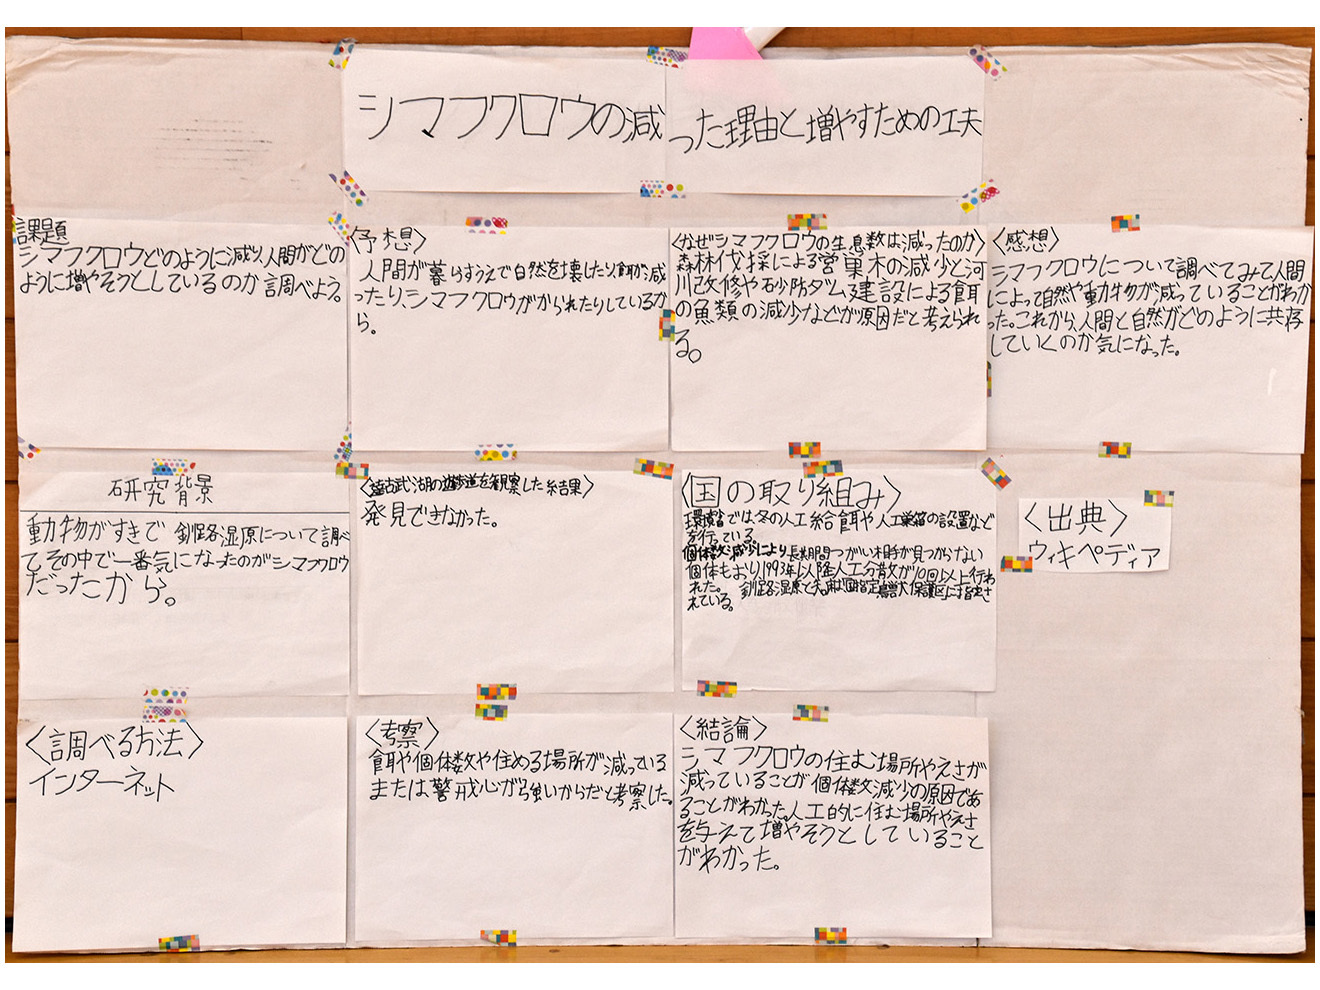 シマフクロウの減った理由と増やすための工夫
課題
シマフクロウどのように減り、人間がどの
ように増やそうとしているのか調べよう。
研究背景
動物がすきで 釧路湿原について調べ
てその中で一番気になったのがシマフクロウ
だったから。
〈調べる方法〉
インターネット
〈予想〉
人間が暮らすうえで自然を壊したり、餌が減
ったり、シマフクロウがかられたりしているか
ら。
〈塘路湖の遊歩道を観察した結果〉
発見できなかった。
〈考察〉
餌や個体数や住める場所が減っている
または警戒心が強いからだと考察した。
〈なぜシマフクロウの生息数は減ったのか〉
森林伐採による営巣木の減少と河
川改修や砂防ダム建設による餌
の魚類の減少などが原因だと考えられ
る。
〈国の取り組み〉
環境省では、冬の人工給餌や人工巣箱の設置など
を行っている。
個体数減少により、長期間つがい相手が見つからない
個体もおり、1993年以降人工分散が10回以上行わ
れた。 釧路湿原と知床は国指定鳥獣保護区に指定さ
れている。
〈結論〉
シマフクロウの住む場所やえさが
減っていることが個体数減少の原因であ
ることがわかった。人工的に住む場所やえさ
を与えて増やそうとしていること
がわかった。
〈感想〉
シマフクロウについて調べてみて人間
によって自然や動物が減っていることがわか
った。これから、人間と自然がどのように共存
していくのか気になった。
〈出典〉
ウィキペディア